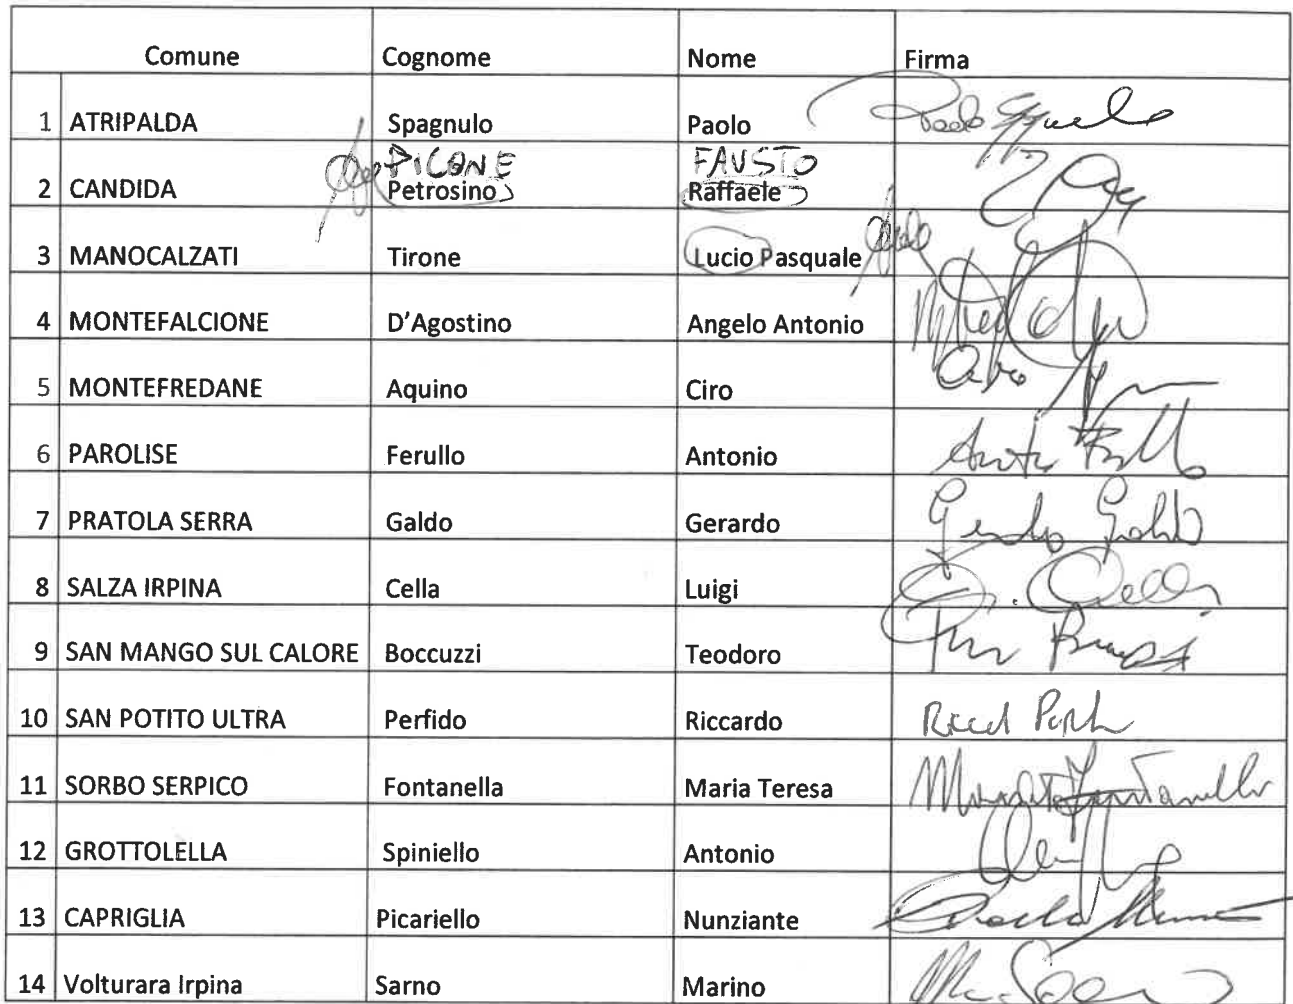 Comune Cognome Nome Firma
1 ATRIPALDA Spagnulo Paolo Paolo Spagnuolo
PICONE FAUSTO
2 CANDIDA Petrosino Raffaele
3 MANOCALZATI Tirone Lucio Pasquale
4 MONTEFALCIONE D'Agostino Angelo Antonio
5 MONTEFREDANE Aquino Ciro
6 PAROLISE Ferullo Antonio
7 PRATOLA SERRA Galdo Gerardo Gerardo Galdo
8 SALZA IRPINA Cella Luigi
9 SAN MANGO SUL CALORE Boccuzzi Teodoro
10 SAN POTITO ULTRA Perfido Riccardo
11 SORBO SERPICO Fontanella Maria Teresa
12 GROTTOLELLA Spiniello Antonio
13 CAPRIGLIA Picariello Nunziante
14 Volturara Irpina Sarno Marino